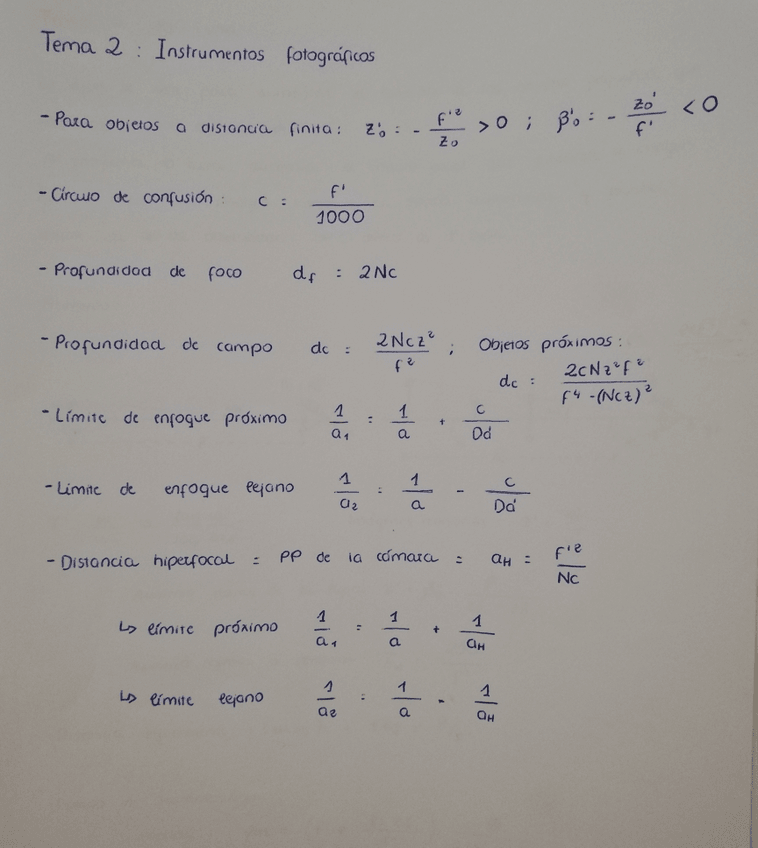 Tema 2 : Instrumentos fotográficos
- Para objetos a distancia finita: z'₀ = - f'²/z₀ > 0 ; β'₀ = - z₀'/f' < 0
- Círculo de confusión: c = f'/1000
- Profundidad de foco d_f = 2Nc
- Profundidad de campo dc = 2Ncz²/f² ; Objetos próximos:
dc = 2cNz²f²/f⁴-(Ncz)²
- Límite de enfoque próximo 1/a₁ = 1/a + c/Da'
- Límite de enfoque lejano 1/a₂ = 1/a - c/Da'
- Distancia hiperfocal = PP de la cámara = a_H = f'²/Nc
↳ límite próximo 1/a₁ = 1/a + 1/a_H
↳ límite lejano 1/a₂ = 1/a - 1/a_H